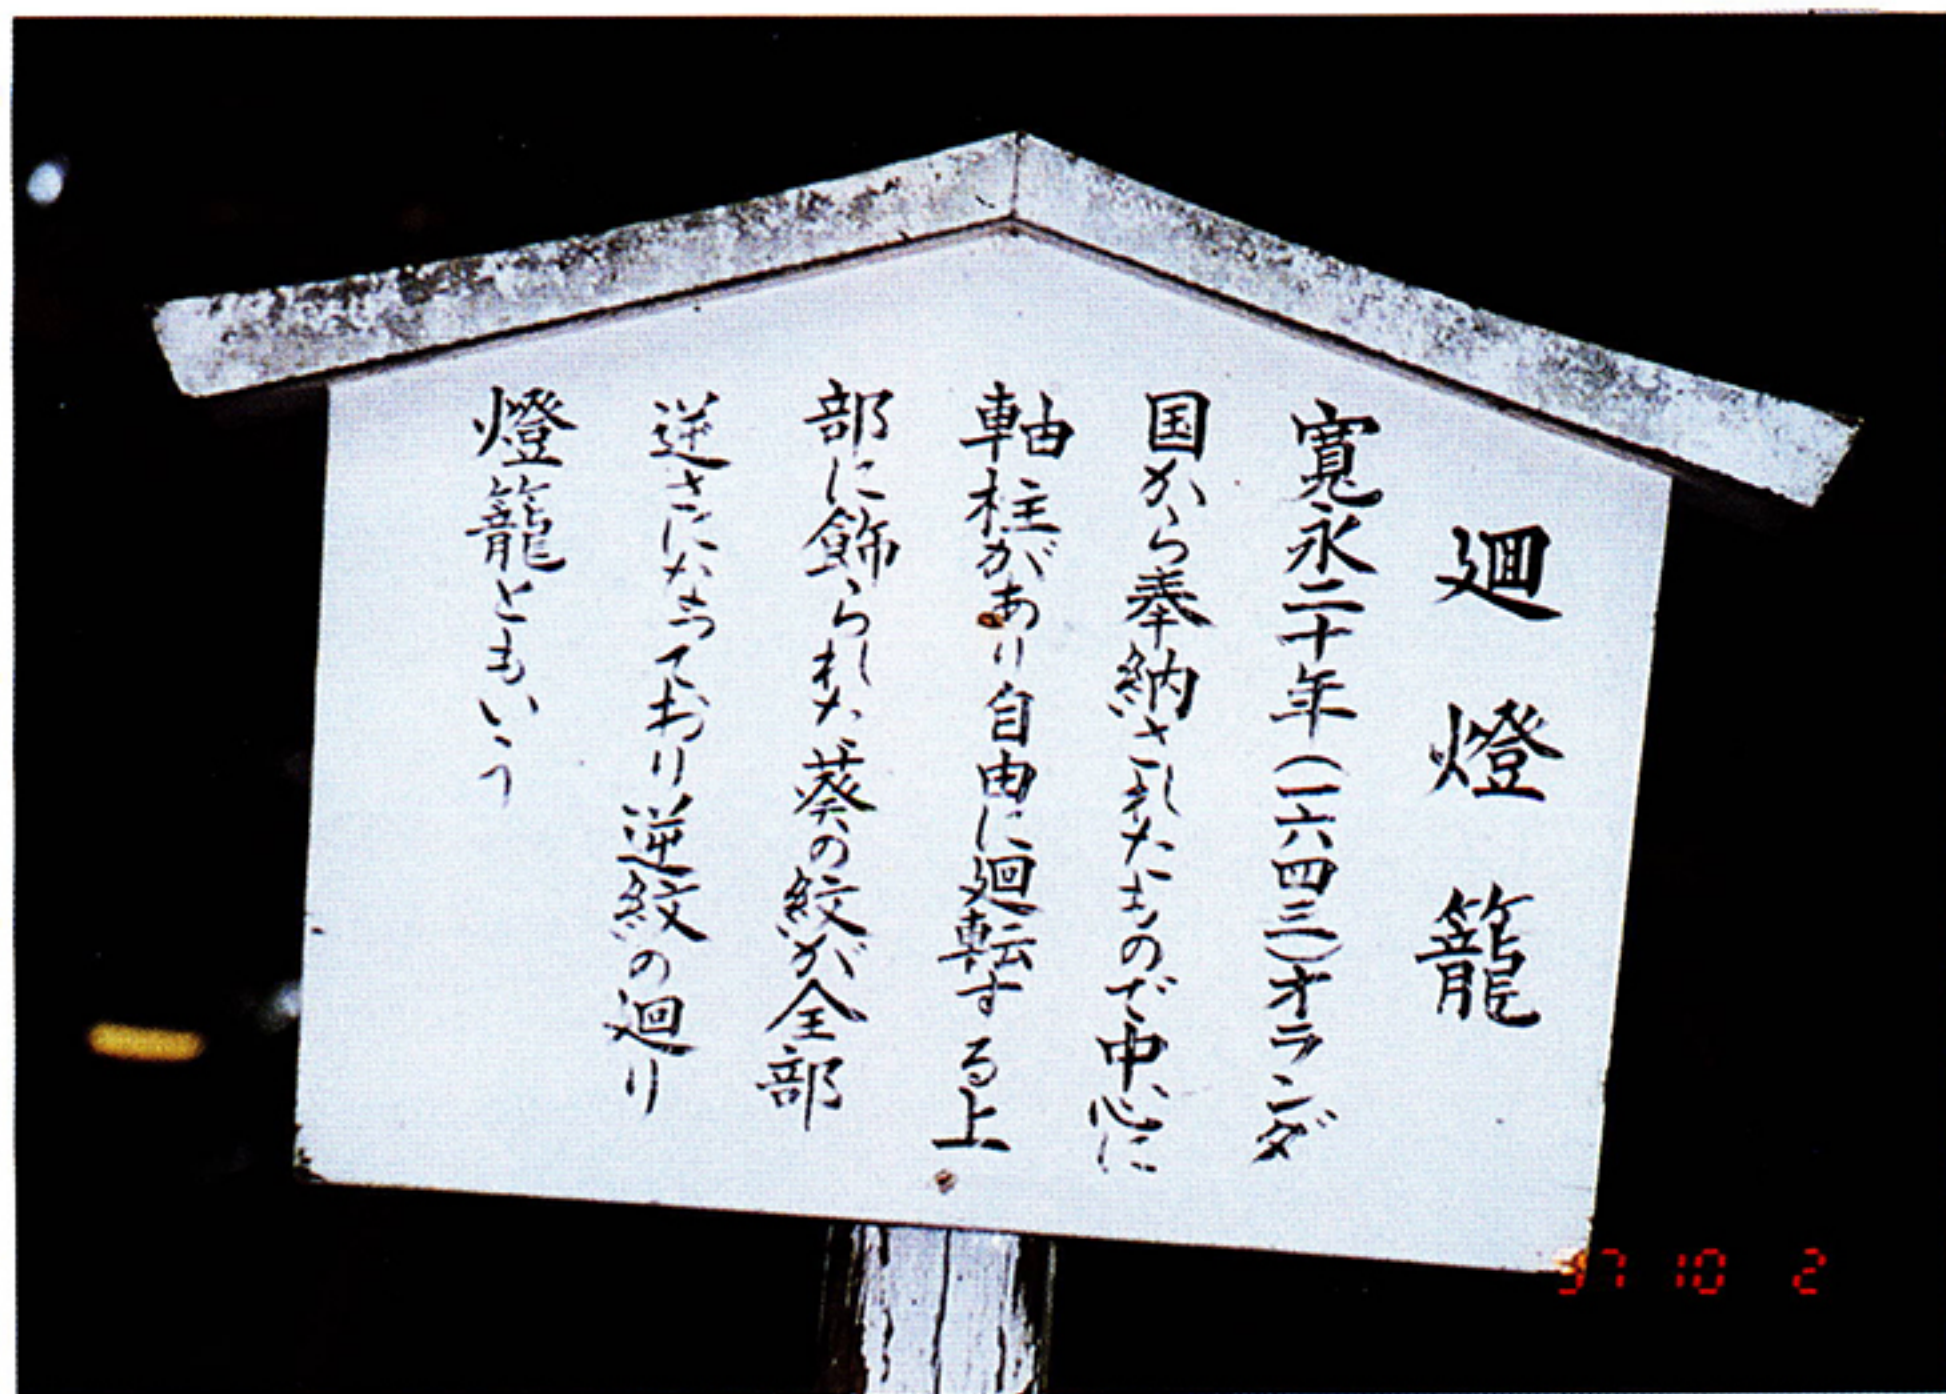 廻燈籠
寛永二十年(一六四三)オランダ
国から奉納されたもので中心に
軸柱があり自由に廻転する上
部に飾られた葵の紋が全部
逆さになっており逆紋の廻り
燈籠ともいう
97 10 2